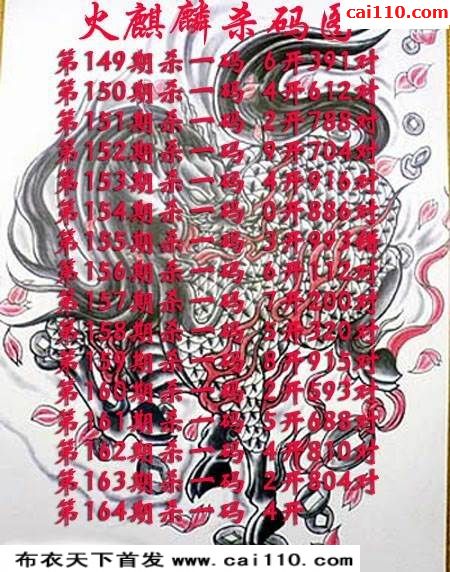 cai110.com
火麒麟杀码
第149期杀一码 6开391对
第150期杀一码 4开612对
第151期杀一码 2开788对
第152期杀一码 9开704对
第153期杀一码 4开916对
第154期杀一码 0开886对
第155期杀一码 3开993错
第156期杀一码 6开112对
第157期杀一码 7开200对
第158期杀一码 5开320对
第159期杀一码 8开915对
第160期杀一码 2开593对
第161期杀一码 5开688对
第162期杀一码 4开810对
第163期杀一码 2开804对
第164期杀一码 4开
布衣天下首发 www.cai110.com